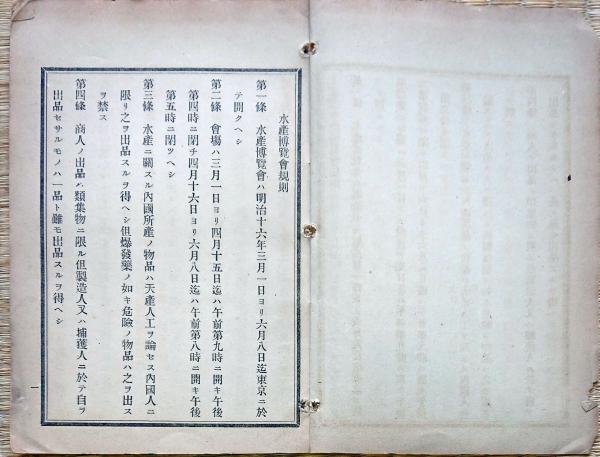 水產博覽會規則
第一條 水產博覽會ハ明治十六年三月一日ヨリ六月八日迄東京ニ於
テ開クヘシ
第二條 會場ハ三月一日ヨリ四月十五日迄ハ午前第九時ニ開キ午後
第四時ニ閉チ四月十六日ヨリ六月八日迄ハ午前第八時ニ開キ午後
第五時ニ閉ツヘシ
第三條 水產ニ關スル內國所產ノ物品ハ天產人工ヲ論セス內國人ニ
限リ之ヲ出品スルヲ得ヘシ但爆發藥ノ如キ危險ノ物品ハ之ヲ出ス
ヲ禁ス
第四條 商人ノ出品ハ類集物ニ限ル但製造人又ハ捕獲人ニ於テ自ヲ
出品セサルモノハ一品ト雖モ出品スルヲ得ヘシ
一